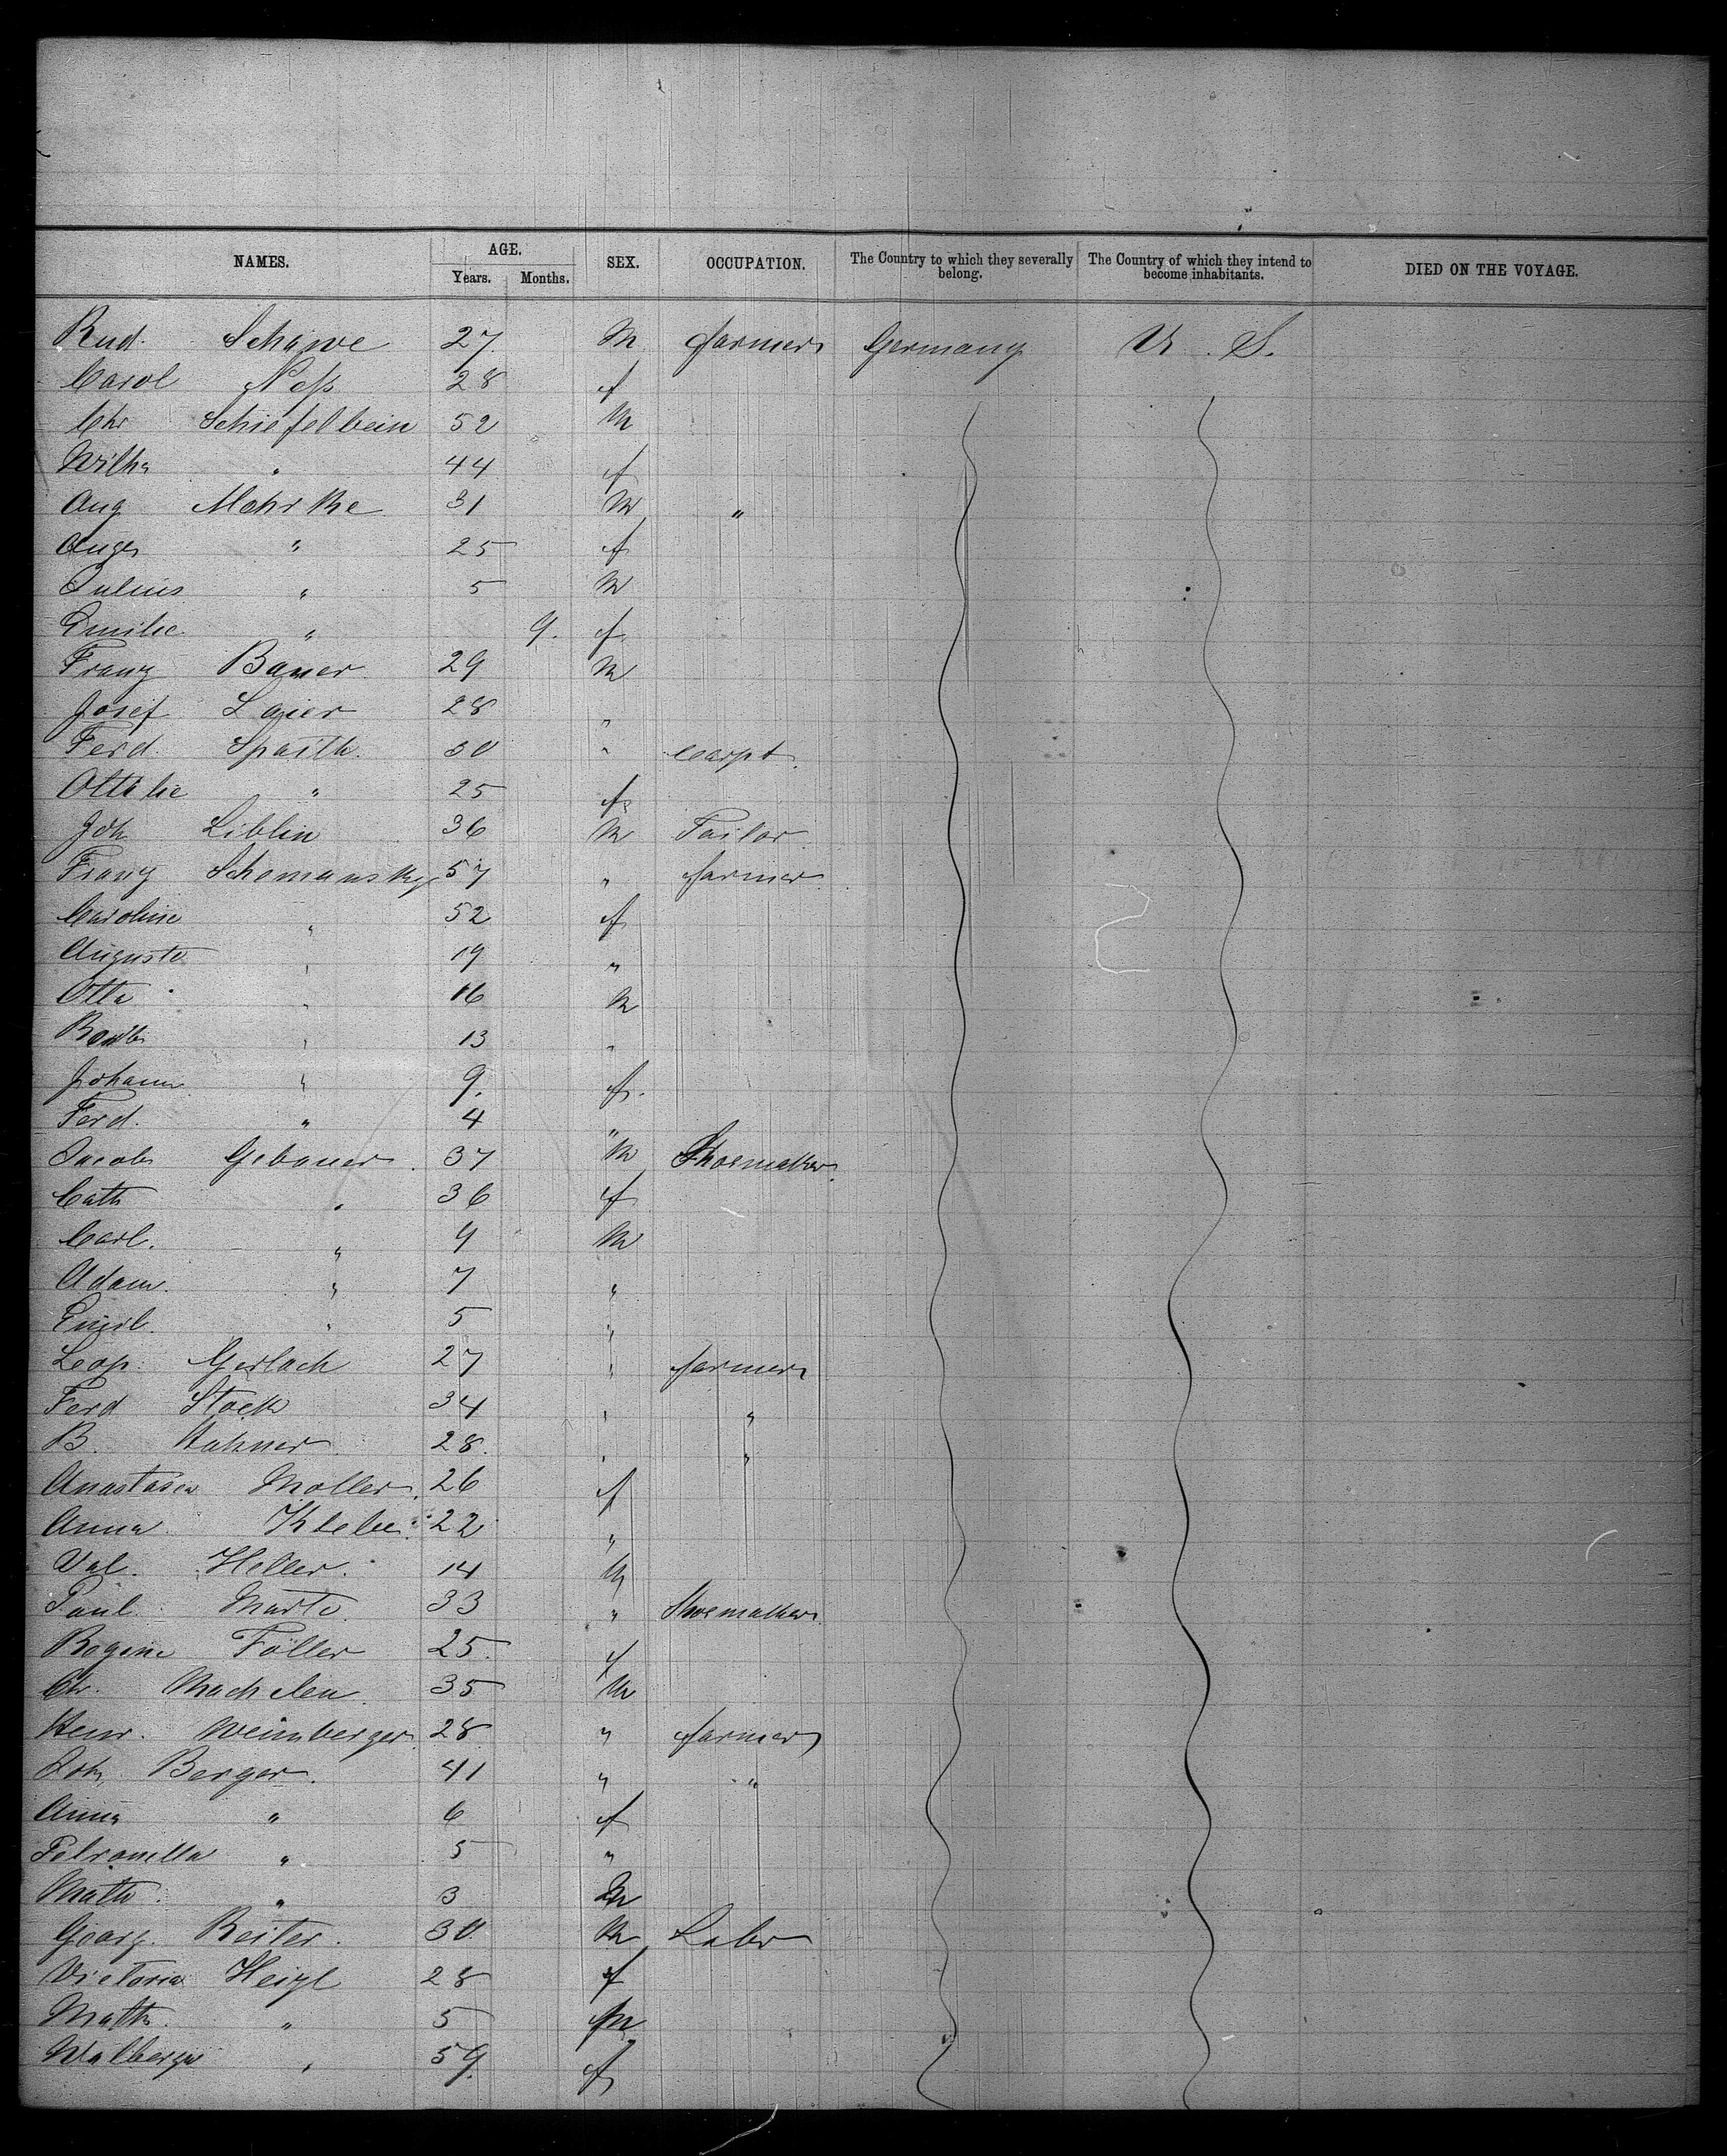 NAMES. AGE. SEX. OCCUPATION. The Country to which they severally belong. The Country of which they intend to become inhabitants. DIED ON THE VOYAGE.
Years. Months.
Rud. Schawe 27 M farmer Germany U. S.
Carol Neß 28 f
Chr Schiefelbein 52 M
Wilh. " 44 f
Aug Mohrke 31 M "
Auge " 25 f
Julius " 5 M
Emilie " 9. f.
Franz Bauer 29 M
Josef Laier 28 "
Ferd. Spaith. 30 " carpt.
Ottilie " 25 f
Joh Liblin 36 M Tailor
Franz Schomansky 57 " farmer
Caroline " 52 f
Auguste " 19 "
Otto " 16 M
" 13 "
Johann " 9. f.
Ferd. " 4 "
Jacob Gebauer. 37 M Shoemaker.
Cath " 36 f
Carl. " 9 M
Adam. " 7 "
Emil. " 5 "
Leop. Gerlach 27 " farmer
Ferd Stock 34 " "
B. Hahner 28. " "
Anastasia Moller. 26 f
Anna Klebe. 22 "
Val. Heller. 14 M
Paul. Marte. 33 " Shoemaker
Regine Föller 25. f
Chr. 35 M
Henr. Weinberger 28 " farmer
Joh. Berger. 41 " "
Anna " 6 f
Petronella " 5 "
Math. " 3 M
Georg. Reiter. 30 M Labr
Victoria Heigl 28 f
Math. " 5 M
Walberga " 59. f